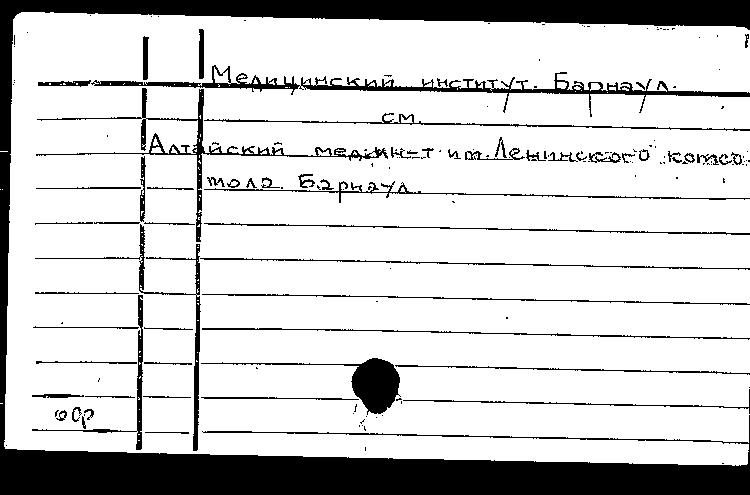 Медицинский институт. Барнаул.
см.
Алтайский мед.ин-т им. Ленинского комсо-
мола. Барнаул.